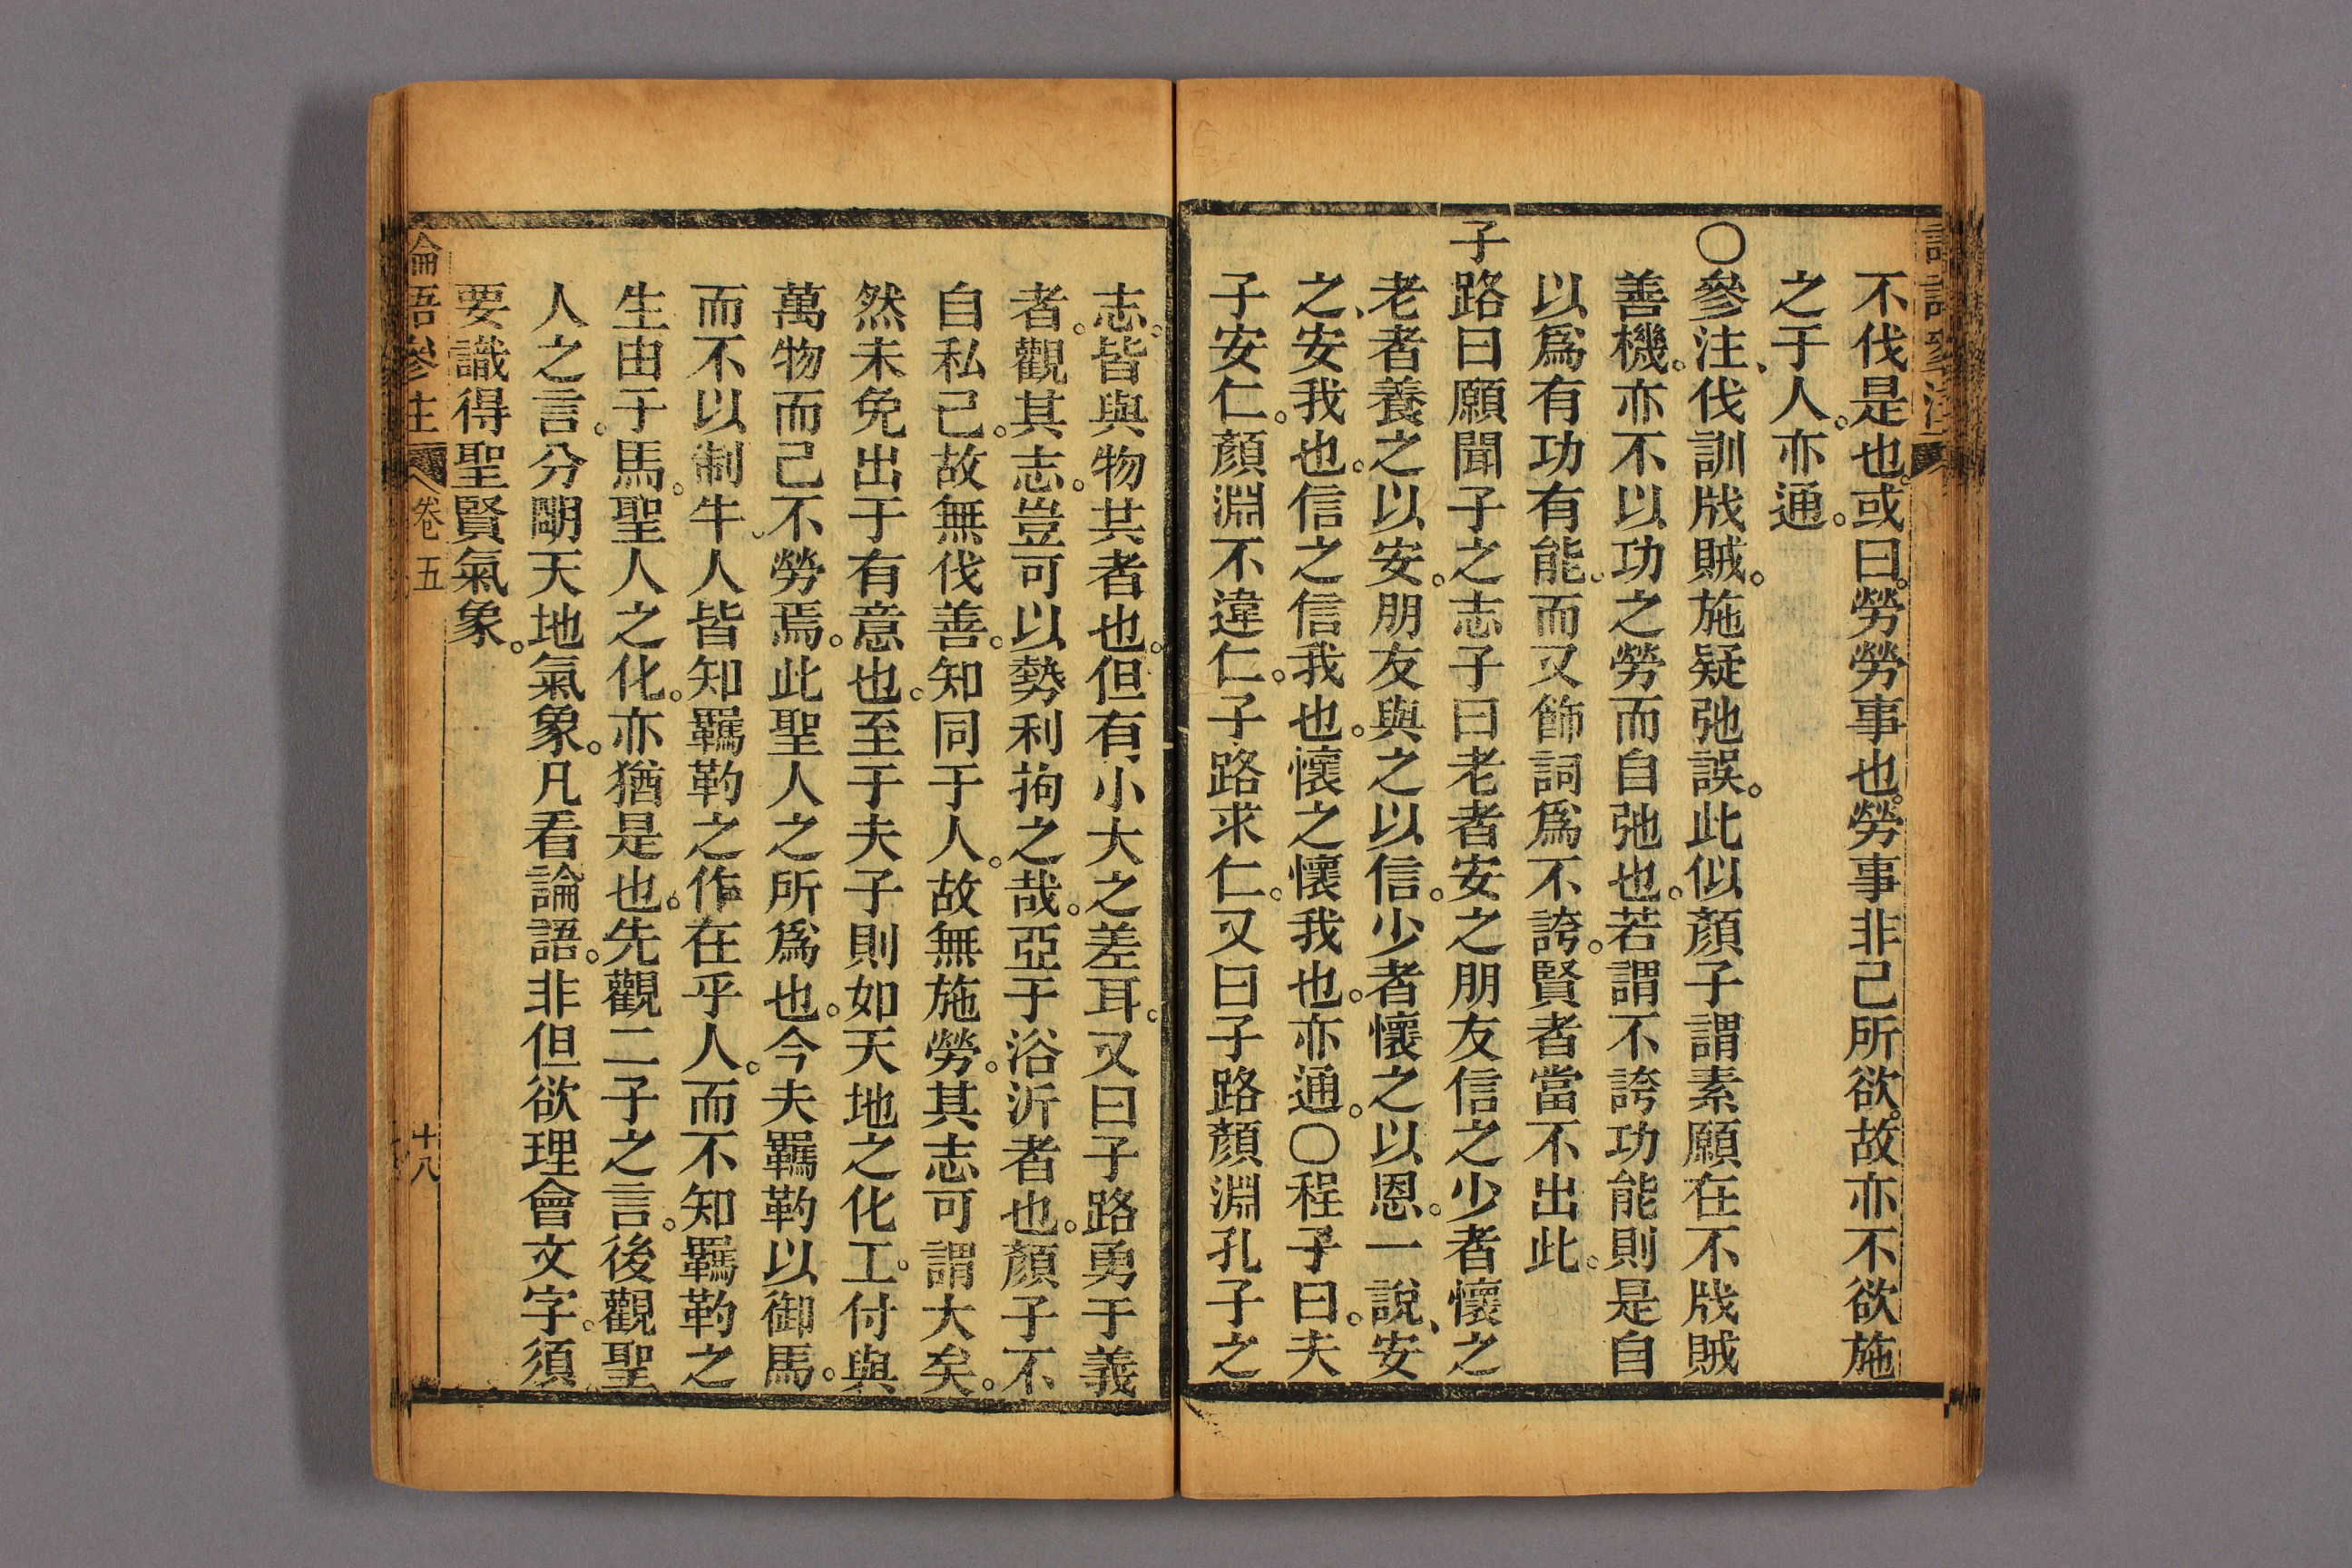 不伐是也。或曰。勞勞事也。勞事非己所欲。故亦不欲施
之于人。亦通。
〇參注、伐訓戕賊。施疑弛誤。此似顏子謂素願在不戕賊
善機。亦不以功之勞而自弛也。若謂不誇功能則是自
以爲有功有能。而又飾詞爲不誇。賢者當不出此。
子路曰願聞子之志子曰老者安之朋友信之少者懷之
老者養之以安。朋友與之以信。少者懷之以恩。一說、安
之、安我也。信之信我也。懷之懷我也。亦通。〇程子曰。夫
子安仁。顏淵不違仁。子路求仁。又曰子路顏淵孔子之
志。皆與物共者也。但有小大之差耳。又曰子路勇于義
者。觀其志。豈可以勢利拘之哉。亞于浴沂者也。顏子不
自私己。故無伐善。知同于人。故無施勞。其志可謂大矣。
然未免出于有意也。至于夫子則如天地之化工。付與
萬物而己不勞焉。此聖人之所爲也。今夫羈靮以御馬。
而不以制牛。人皆知羈靮之作在乎人。而不知羈靮之
生由于馬。聖人之化。亦猶是也。先觀二子之言。後觀聖
人之言。分明天地氣象。凡看論語。非但欲理會文字。須
要識得聖賢氣象。
論語參注 卷五 十八